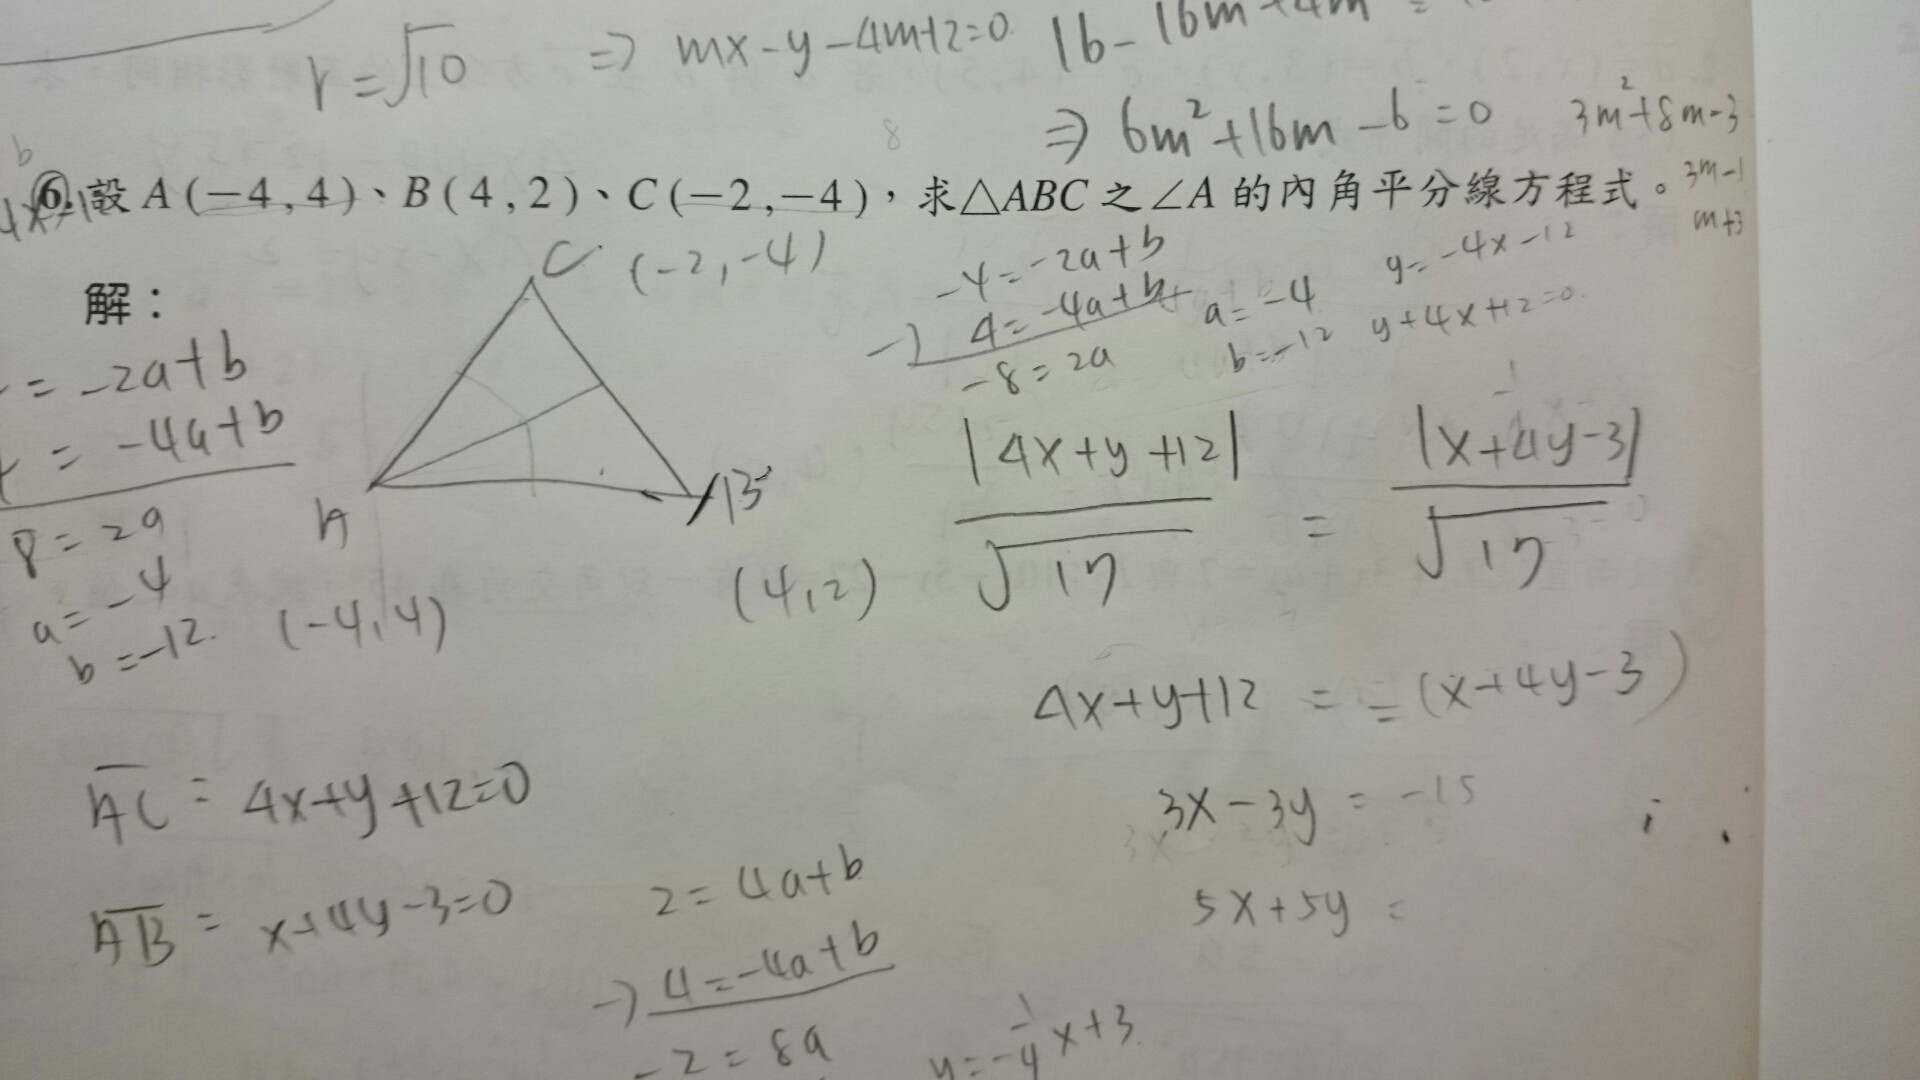 r=√10
⇒ mx-y-4m+2=0
⇒ 6m²+16m-6=0
3m²+8m-3
3m-1
m+3
⑥.設 A(−4,4)、B(4,2)、C(−2,−4),求△ABC 之∠A 的內角平分線方程式。
解:
C (-2,-4)
A
(-4,4)
B
(4,2)
= -2a+b
= -4a+b
8=2a
a=-4
b=-12.
-4=-2a+b
-) 4=-4a+b
-8=2a
a=-4
b=-12
y=-4x-12
y+4x+12=0.
|4x+y+12| / √17 = |x+4y-3| / √17
4x+y+12 = -(x+4y-3)
3x-3y = -15
5x+5y =
AC = 4x+y+12=0
AB = x+4y-3=0
2=4a+b
-) 4=-4a+b
-2=8a
y=-1/4x+3